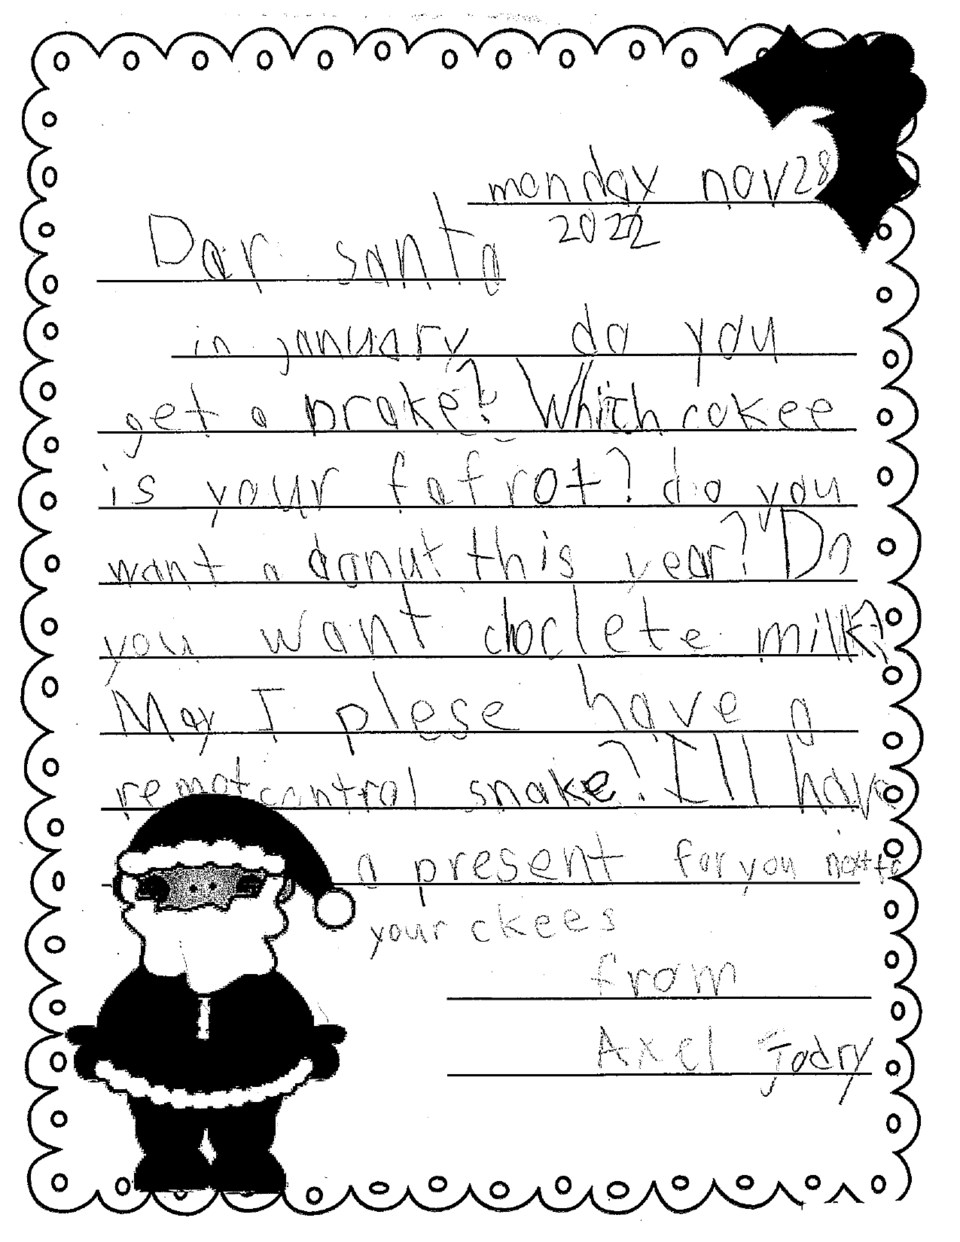 monday nov 28
2022
Dar santa
in january do you
get a brake? Which cokee
is your fafrot? do you
want a donut this year? Do
you want choclete milk?
May I plese have a
remot control snake? I'll have
a present for you next to
your ckees
from
Axel Jodry